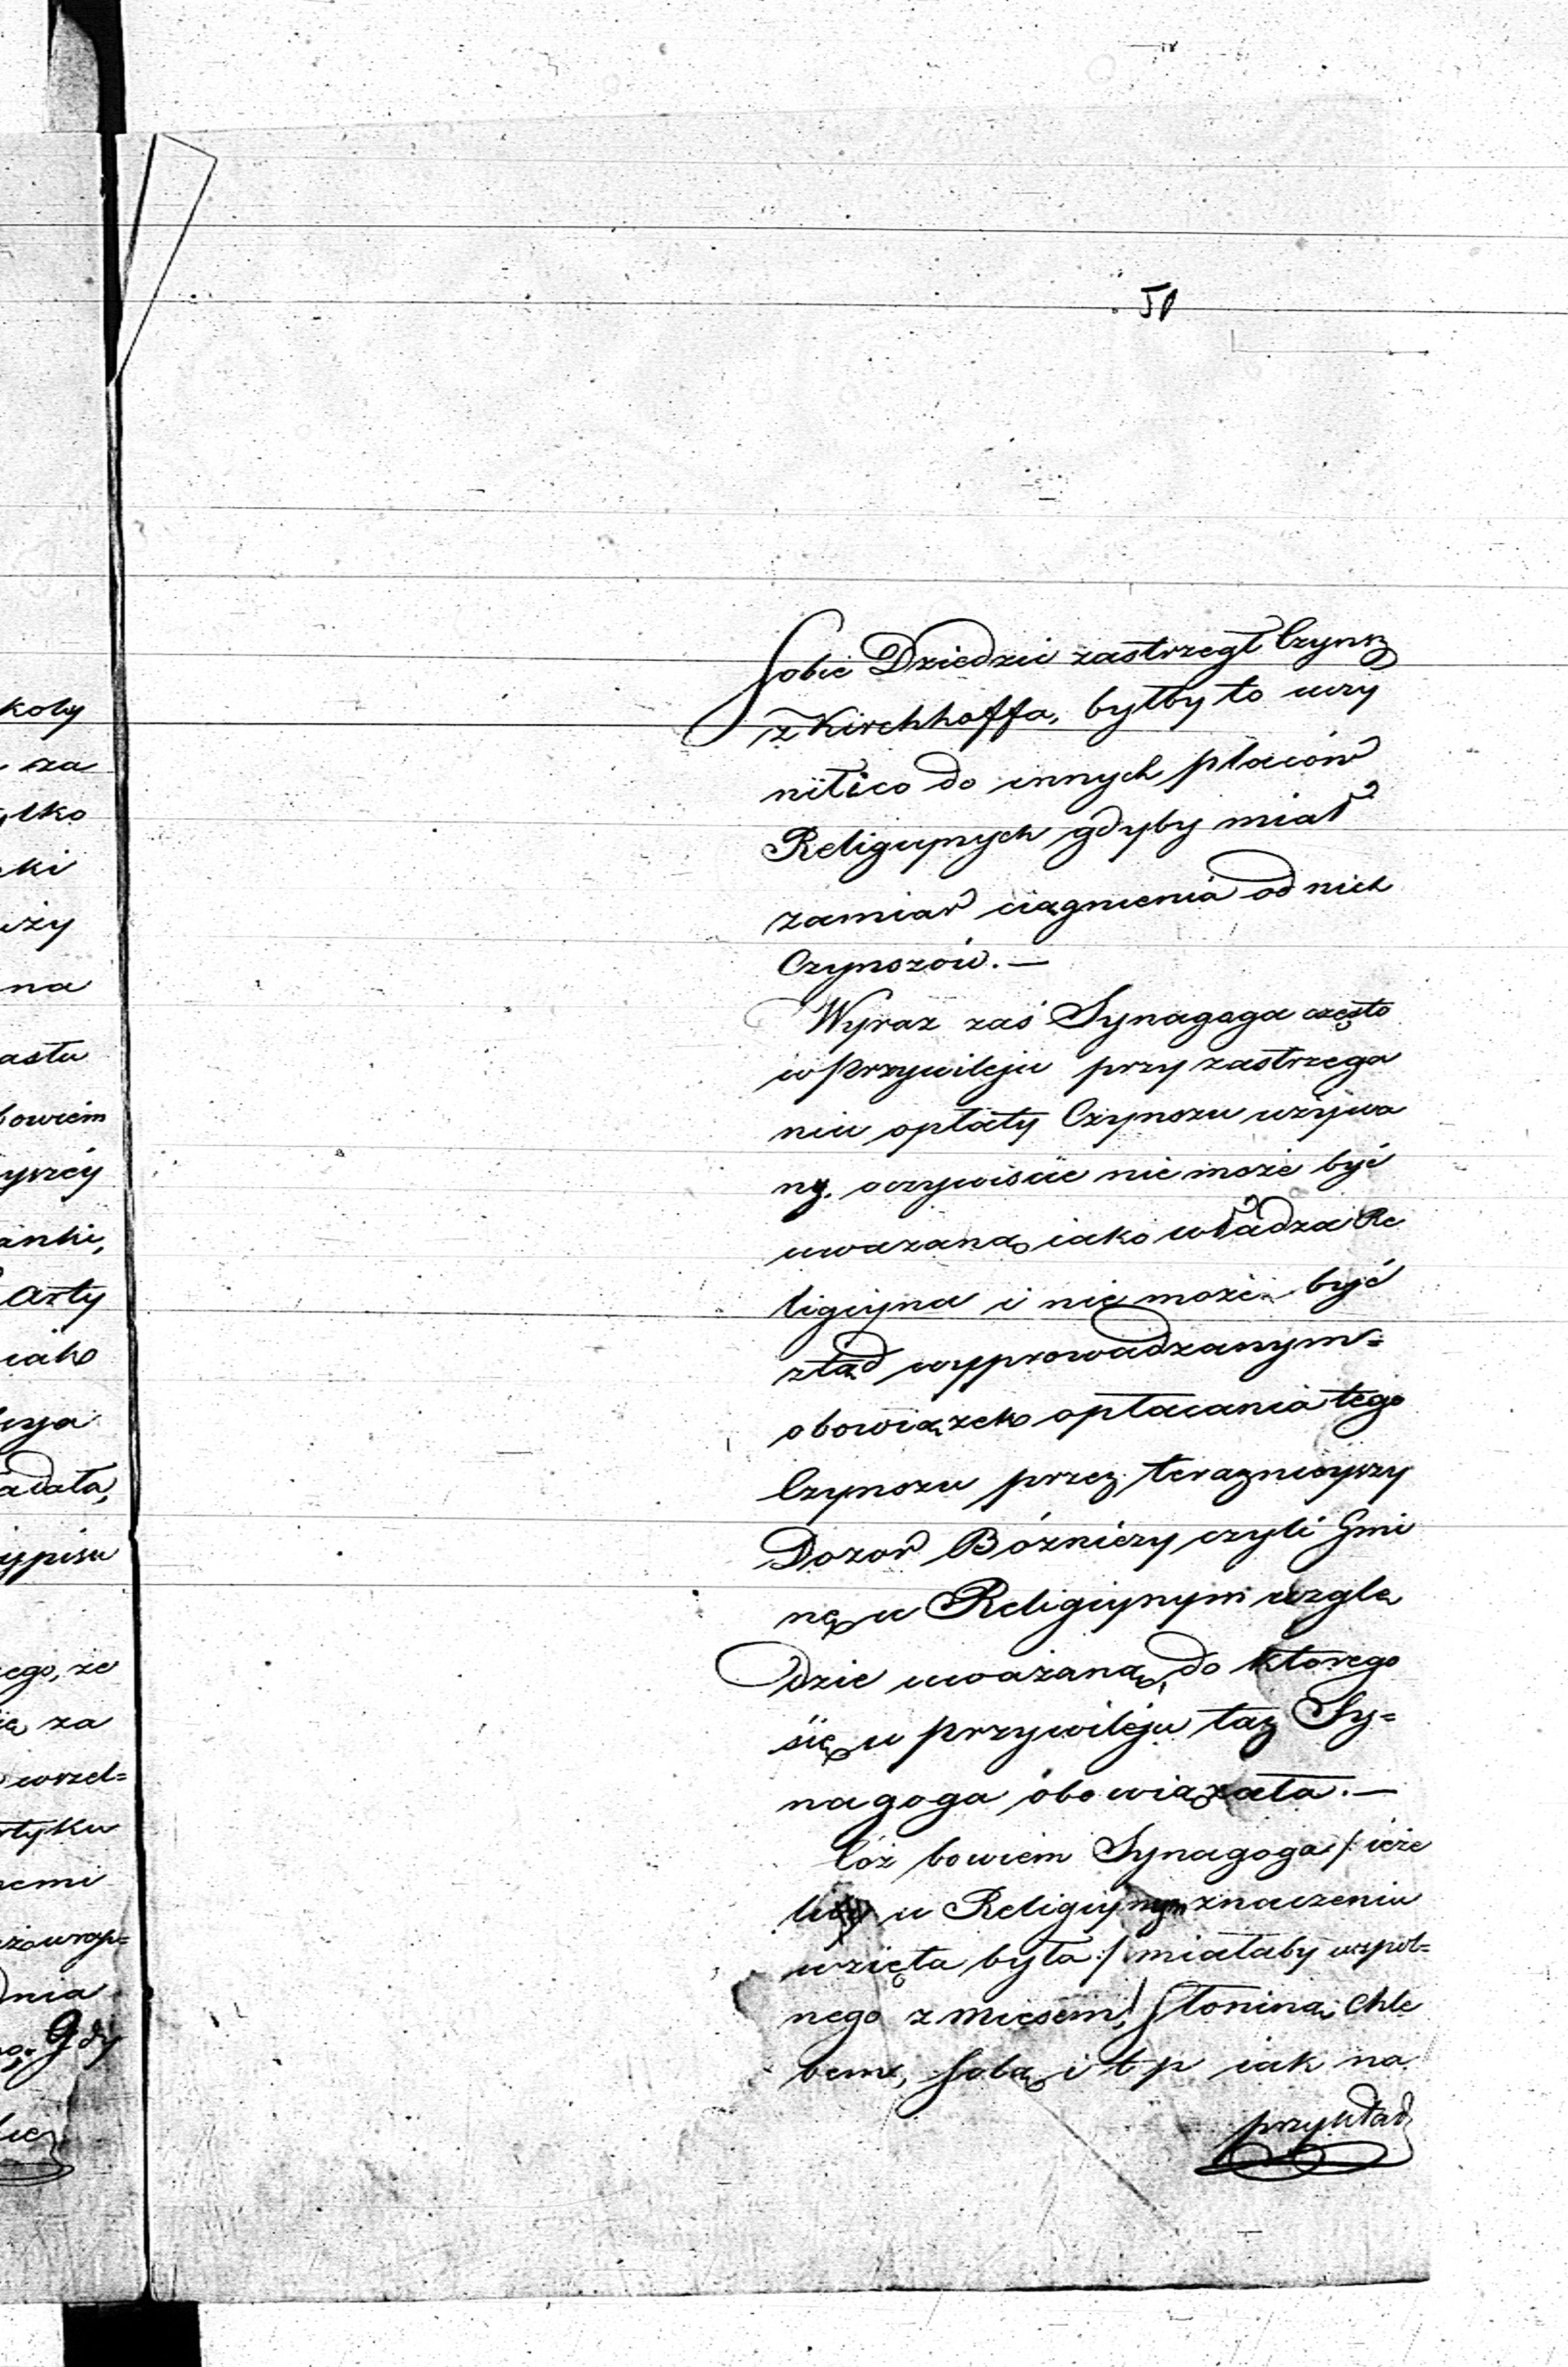 51
koly
za
ylko
ki
uży
na
astu
bowiem
yszéy
anki,
Arty
iako
adała,
ypisu
cego, że
ię za
wszel=
rtyku
nemi
dnia
Gdy
Sobie Dziedzic zastrzegł Czynsz
z Kirchhoffa, byłby to uczy
nił i co do innych placów
Religiynych gdyby miał
zamiar ciągnienia od nich
Czynszów. —
Wyraz zaś Synagoga często
w Przywileju przy zastrzega
niu opłaty Czynszu używa
ny. oczywiście nie może być
uważaną iako władza Re
ligiyna i nie może być
ztąd wyprowadzanym=
obowiązek opłacania tego
Czynszu przez teraznieyszy
Dozór Bóżniczy czyli Gmi
nę w Religiynym wzglę
dzie uważaną, do którego
się w przywileju taż Sy=
nagoga obowiązała. —
Cóż bowiem Synagoga /: ieże
li w Religiynym znaczeniu
wzięta była :/ miałaby wspól=
nego z mięsem, Słoniną, Chle
bem, Solą i t p iak na
przykład